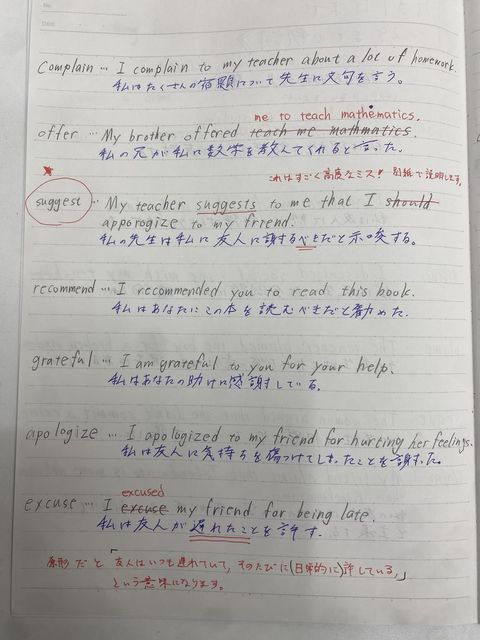 No.
Date
Complain … I complain to my teacher about a lot of homework.
私はたくさんの宿題について先生に文句を言う。
me to teach mathematics.
offer … My brother offered teach me mathmatics.
私の兄が私に数学を教えてくれると言った。
これはすごく高度なミス! 別紙で説明します。
suggest … My teacher suggests to me that I should
apporogize to my friend.
私の先生は私に友人に謝するべきだと示唆する。
recommend … I recommended you to read this book.
私はあなたにこの本を読むべきだと勧めた。
grateful … I am grateful to you for your help.
私はあなたの助けに感謝している。
apologize … I apologized to my friend for hurting her feelings.
私は友人に気持ちを傷つけてしまったことを謝した。
excused
excuse … I excuse my friend for being late.
私は友人が遅れたことを許す。
原形だと「友人はいつも遅れていて,そのたびに(日常的に)許している,」
という意味になります。